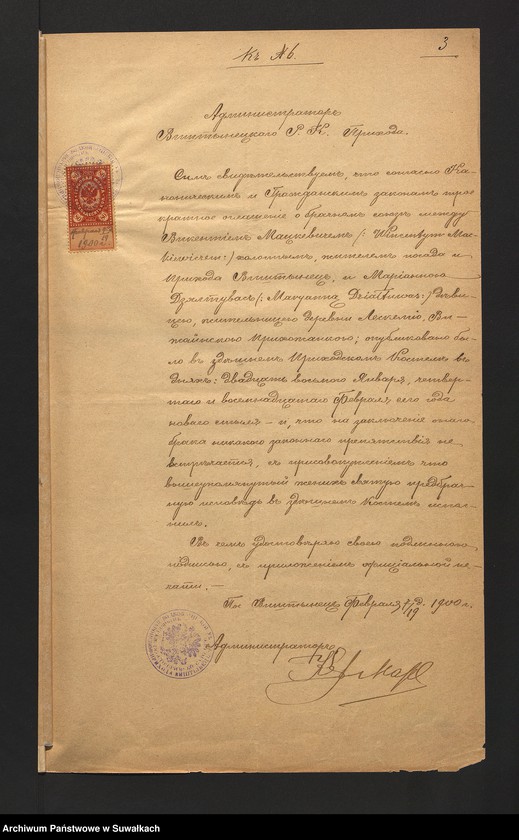 Къ № 6.
3
Администраторъ
Виштынецкаго Р. К. Прихода.
Симъ свидѣтельствуемъ, что согласно Ка-
ноническимъ и Гражданскимъ законамъ трое-
кратное оглашеніе о брачномъ союзѣ между
Викентіемъ Мацкевичемъ /: Wincentym Mac-
kiewiczem :/ холостымъ, жителемъ посада и
прихода Виштынецъ, и Маріанною
/: Maryanną :/ дѣви-
цею, жительницею деревни Ви-
жайнскаго прихода; опубликовано бы-
ло въ здѣшнемъ Приходскомъ Костелѣ въ
дняхъ: двадцать восьмаго Января, четвер-
таго и восемнадцатаго Февраля сего года
новаго стиля – и, что на заключеніе того
брака никакого законнаго препятствія не
встрѣчается, съ присовокупленіемъ что
вышеупомянутый женихъ святую предбрач-
ную исповѣдь въ здѣшнемъ Костелѣ испол-
нилъ.
Въ чемъ удостовѣряю своею подлинною
подписью, съ приложеніемъ оффиціальной пе-
чати. —
Виштынецъ Февраля 7/19 д. 1900 г.
Администраторъ
Февраля
1900
Archiwum Państwowe w Suwałkach